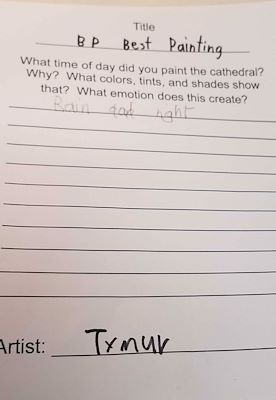 Title
BP Best Painting
What time of day did you paint the cathedral?
Why? What colors, tints, and shades show
that? What emotion does this create?
Rain
Artist: Txmur